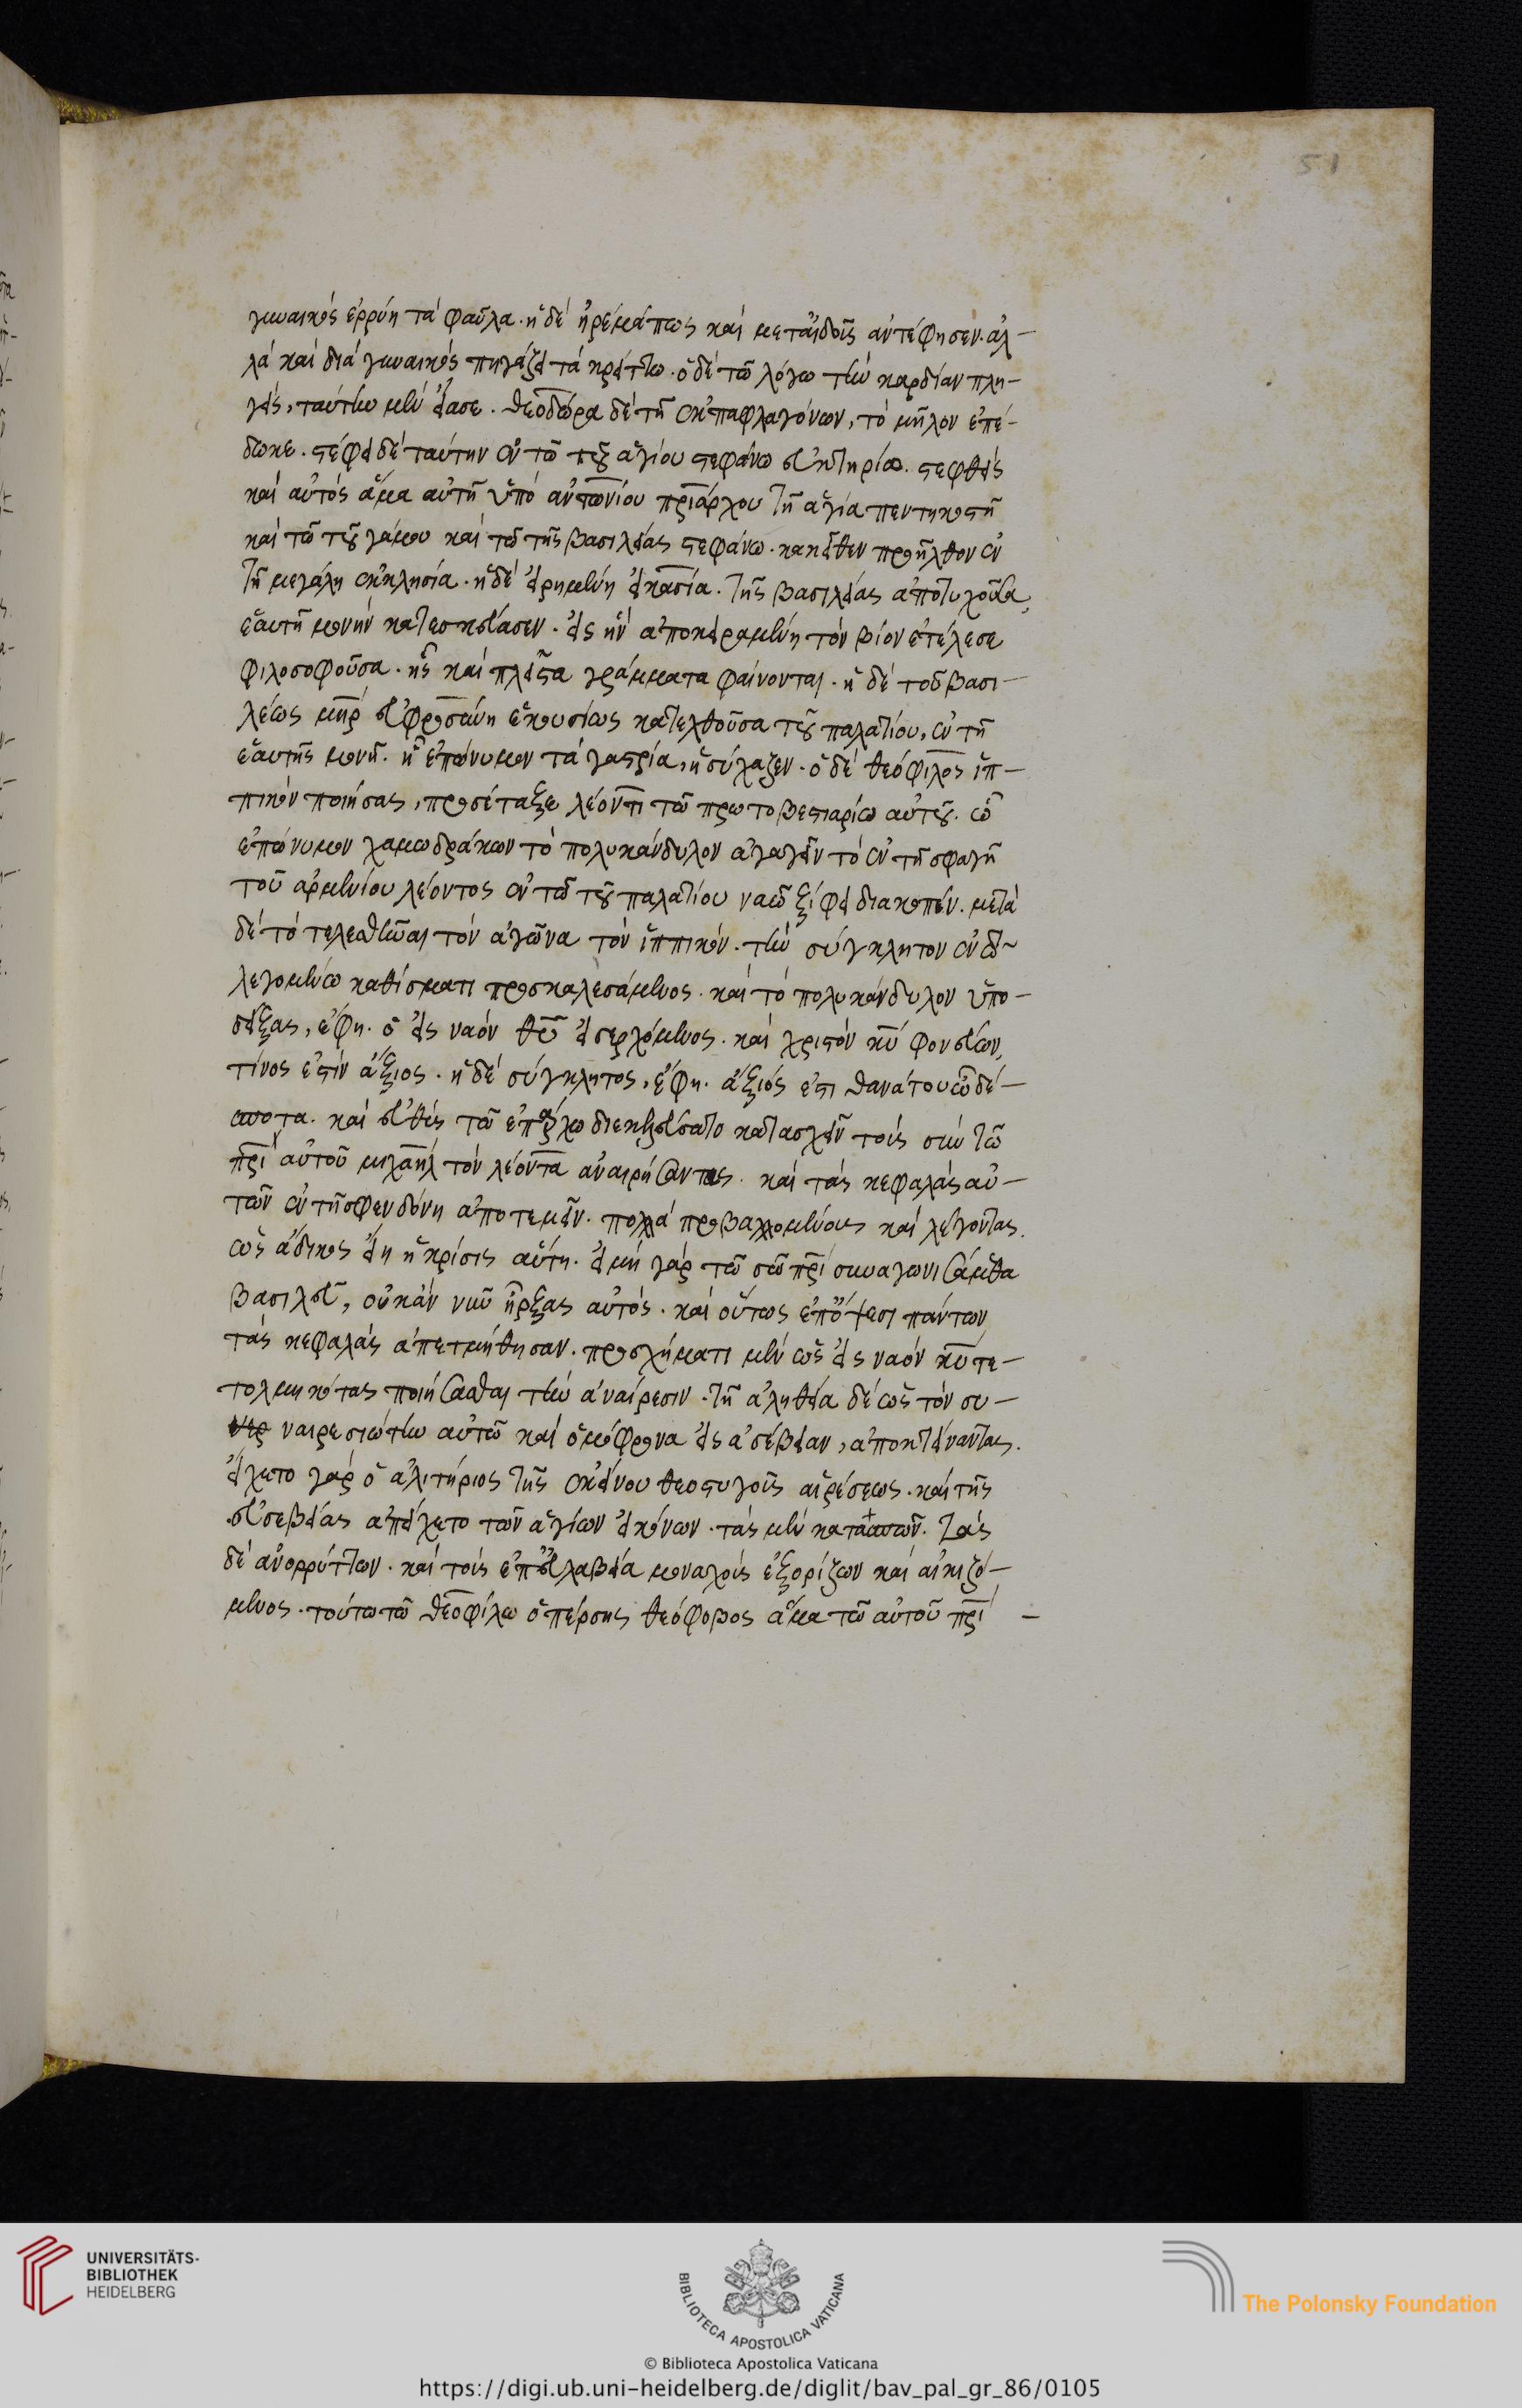 51
γυναικὸς ἐρρύη τὰ φαῦλα. ἡ δὲ ἠρέμα πως καὶ μεταἰδοῖς ἀντέφησεν. ἀλ-
λὰ καὶ διὰ γυναικὸς πηγάζει τὰ κρείττω. ὁ δὲ τῶ λόγω τὴν καρδίαν πλη-
γεὶς, ταύτην μὲν εἴασε. θεοδώρα δὲ τῆ ἐκ παφλαγόνων, τὸ μῆλον ἐπέ-
δωκε. στέφει δὲ ταύτην ἐν τῶ τοῦ ἁγίου στεφάνω εὐκτηρίω. στεφθεὶς
καὶ αὐτὸς ἅμα αὐτῆ ὑπὸ ἀντωνίου πριάρχου τῆ ἁγία πεντηκοστῆ
καὶ τῶ τοῦ γάμου καὶ τῶ τῆς βασιλείας στεφάνω. κακεῖθεν προῆλθον ἐν
τῆ μεγάλη ἐκκλησία. ἡ δὲ εἰρημένη εἰκασία. τῆς βασιλείας ἀποτυχοῦσα,
ἑαυτῆ μονὴν κατεσκεύασεν. εἰς ἣν ἀποκειραμένη τὸν βίον ἐτέλεσε
φιλοσοφοῦσα. ἧς καὶ πλεῖστα γράμματα φαίνονται. ἡ δὲ τοῦ βασι-
λέως μηρ εὐφροσύνη ἑκουσίως κατελθοῦσα τοῦ παλατίου, ἐν τῆ
ἑαυτῆς μονῆ. ἧ ἐπώνυμον τὰ γαστρία, ἡσύχαζεν. ὁ δὲ θεόφιλος ἱπ-
πικὸν ποιήσας, προσέταξε λέοντι τῶ πρωτοβεστιαρίω αὐτοῦ. ὧ
ἐπώνυμον χαμωδράκων τὸ πολυκάνδυλον ἀγαγεῖν τὸ ἐν τῆ σφαγῆ
τοῦ ἀρμενίου λέοντος ἐν τῶ τοῦ παλατίου ναῶ ξίφει διακοπέν. μετὰ
δὲ τὸ τελεσθῆναι τὸν ἀγῶνα τὸν ἱππικὸν. τὴν σύγκλητον ἐν τῶ
λεγομένω καθίσματι προσκαλεσάμενος. καὶ τὸ πολυκάνδυλον ὑπο-
δείξας, ἔφη. ὁ εἰς ναὸν θυ εἰσερχόμενος. καὶ χριστὸν κυ φονεύων,
τίνος ἐστὶν ἄξιος. ἡ δὲ σύγκλητος, ἔφη. ἄξιός ἐστι θανάτου ὦ δέ-
σποτα. καὶ εὐθὺς τῶ ἐπάρχω διεκελεύσατο κατασχεῖν τοὺς σὺν τῶ
πρι αὐτοῦ μιχαὴλ τὸν λέοντα ἀναιρήσαντας. καὶ τὰς κεφαλὰς αὐ-
τῶν ἐν τῆ σφενδόνη ἀποτεμεῖν. πολλὰ προβαλλομένους καὶ λέγοντας.
ὡς ἄδικος εἴη ἡ κρίσις αὕτη. εἰ μὴ γὰρ τῶ σῶ πρι συναγωνισάμεθα
βασιλεῦ, οὐκ ἂν νῦν ἦρξας αὐτός. καὶ οὕτως ἐπόψεσι πάντων,
τὰς κεφαλὰς ἀπετμήθησαν. προσχήματι μὲν ὡς εἰς ναὸν κυ τε-
τολμηκότας ποιήσασθαι τὴν ἀναίρεσιν. τῆ ἀληθεία δὲ ὡς τὸν συ-
ναιρεσιώτην αὐτῶ καὶ ὁμόφρονα εἰς ἀσέβειαν, ἀποκτείναντας.
εἴχετο γὰρ ὁ ἀλιτήριος τῆς ἐκείνου θεοστυγοῦς αἱρέσεως. καὶ τῆς
εὐσεβείας ἀπείχετο τῶν ἁγίων εἰκόνων. τὰς μὲν κατασπῶν. τὰς
δὲ ἀνορρύττων. καὶ τοὺς ἐπ εὐλαβεία μοναχοὺς ἐξορίζων καὶ αἰκιζό-
μενος. τούτω τῶ θεοφίλω ὁ πέρσης θεόφοβος ἅμα τῶ αὐτοῦ πρι -
UNIVERSITÄTS-
BIBLIOTHEK
HEIDELBERG
BIBLIOTECA APOSTOLICA VATICANA
The Polonsky Foundation
© Biblioteca Apostolica Vaticana
https://digi.ub.uni-heidelberg.de/diglit/bav_pal_gr_86/0105